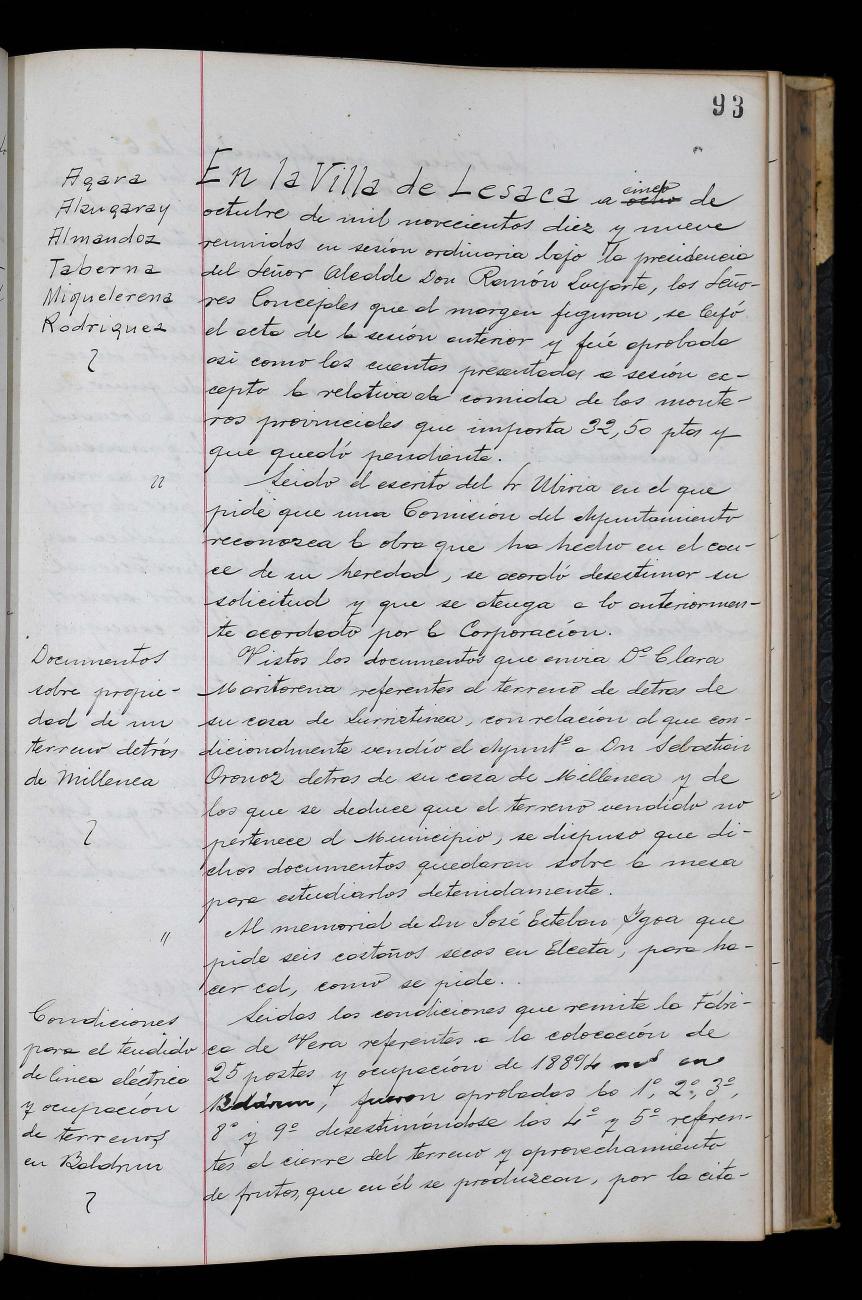 93
Agara
Alzugaray
Almandoz
Taberna
Miquelerena
Rodriguez
En la Villa de Lesaca a cinco ocho de
octubre de mil novecientos diez y nueve
reunidos en sesión ordinaria bajo la presidencia
del Señor Alcalde Don Ramón Loyarte, los Seño-
res Concejales que al margen figuran, se leyó
el acta de la sesión anterior y fué aprobada
asi como las cuentas presentadas a sesión ex-
cepto la relativa a la comida de los monte-
ros provinciales que importa 32,50 ptas y
que quedó pendiente.
"
Leido el escrito del Sr Ubiria en el que
pide que una Comisión del Ayuntamiento
reconozca la obra que ha hecho en el cau-
ce de su heredad, se acordó desestimar su
solicitud y que se atenga a lo anteriormen-
te acordado por la Corporación.
Documentos
sobre propie-
dad de un
terreno detrás
de Millenea
Vistos los documentos que envia Dª Clara
Maritorena referentes al terreno de detras de
su casa de, con relación al que con-
dicionalmente vendío el Ayuntº a Dn Sebastian
Oronoz detras de su casa de Millenea y de
los que se deduce que el terreno vendido no
pertenece al Municipio, se dispuso que di-
chos documentos quedaran sobre la mesa
para estudiarlos detenidamente.
"
Al memorial de Dn José Esteban Ygoa que
pide seis castaños secos en Elceta, para ha-
cer cal, como se pide.
Condiciones
para el tendido
de linea eléctrica
y ocupación
de terrenos
en Baldrun
Leidas las condiciones que remite la Fábri-
ca de Vera referentes a la colocación de
25 postes y ocupación de 18894 ms en
Baldrun, fueron aprobadas la 1ª, 2ª, 3ª,
8ª y 9ª desestimándose las 4ª y 5ª referen-
tes al cierre del terreno y aprovechamiento
de frutos, que en él se produzcan, por la cita-